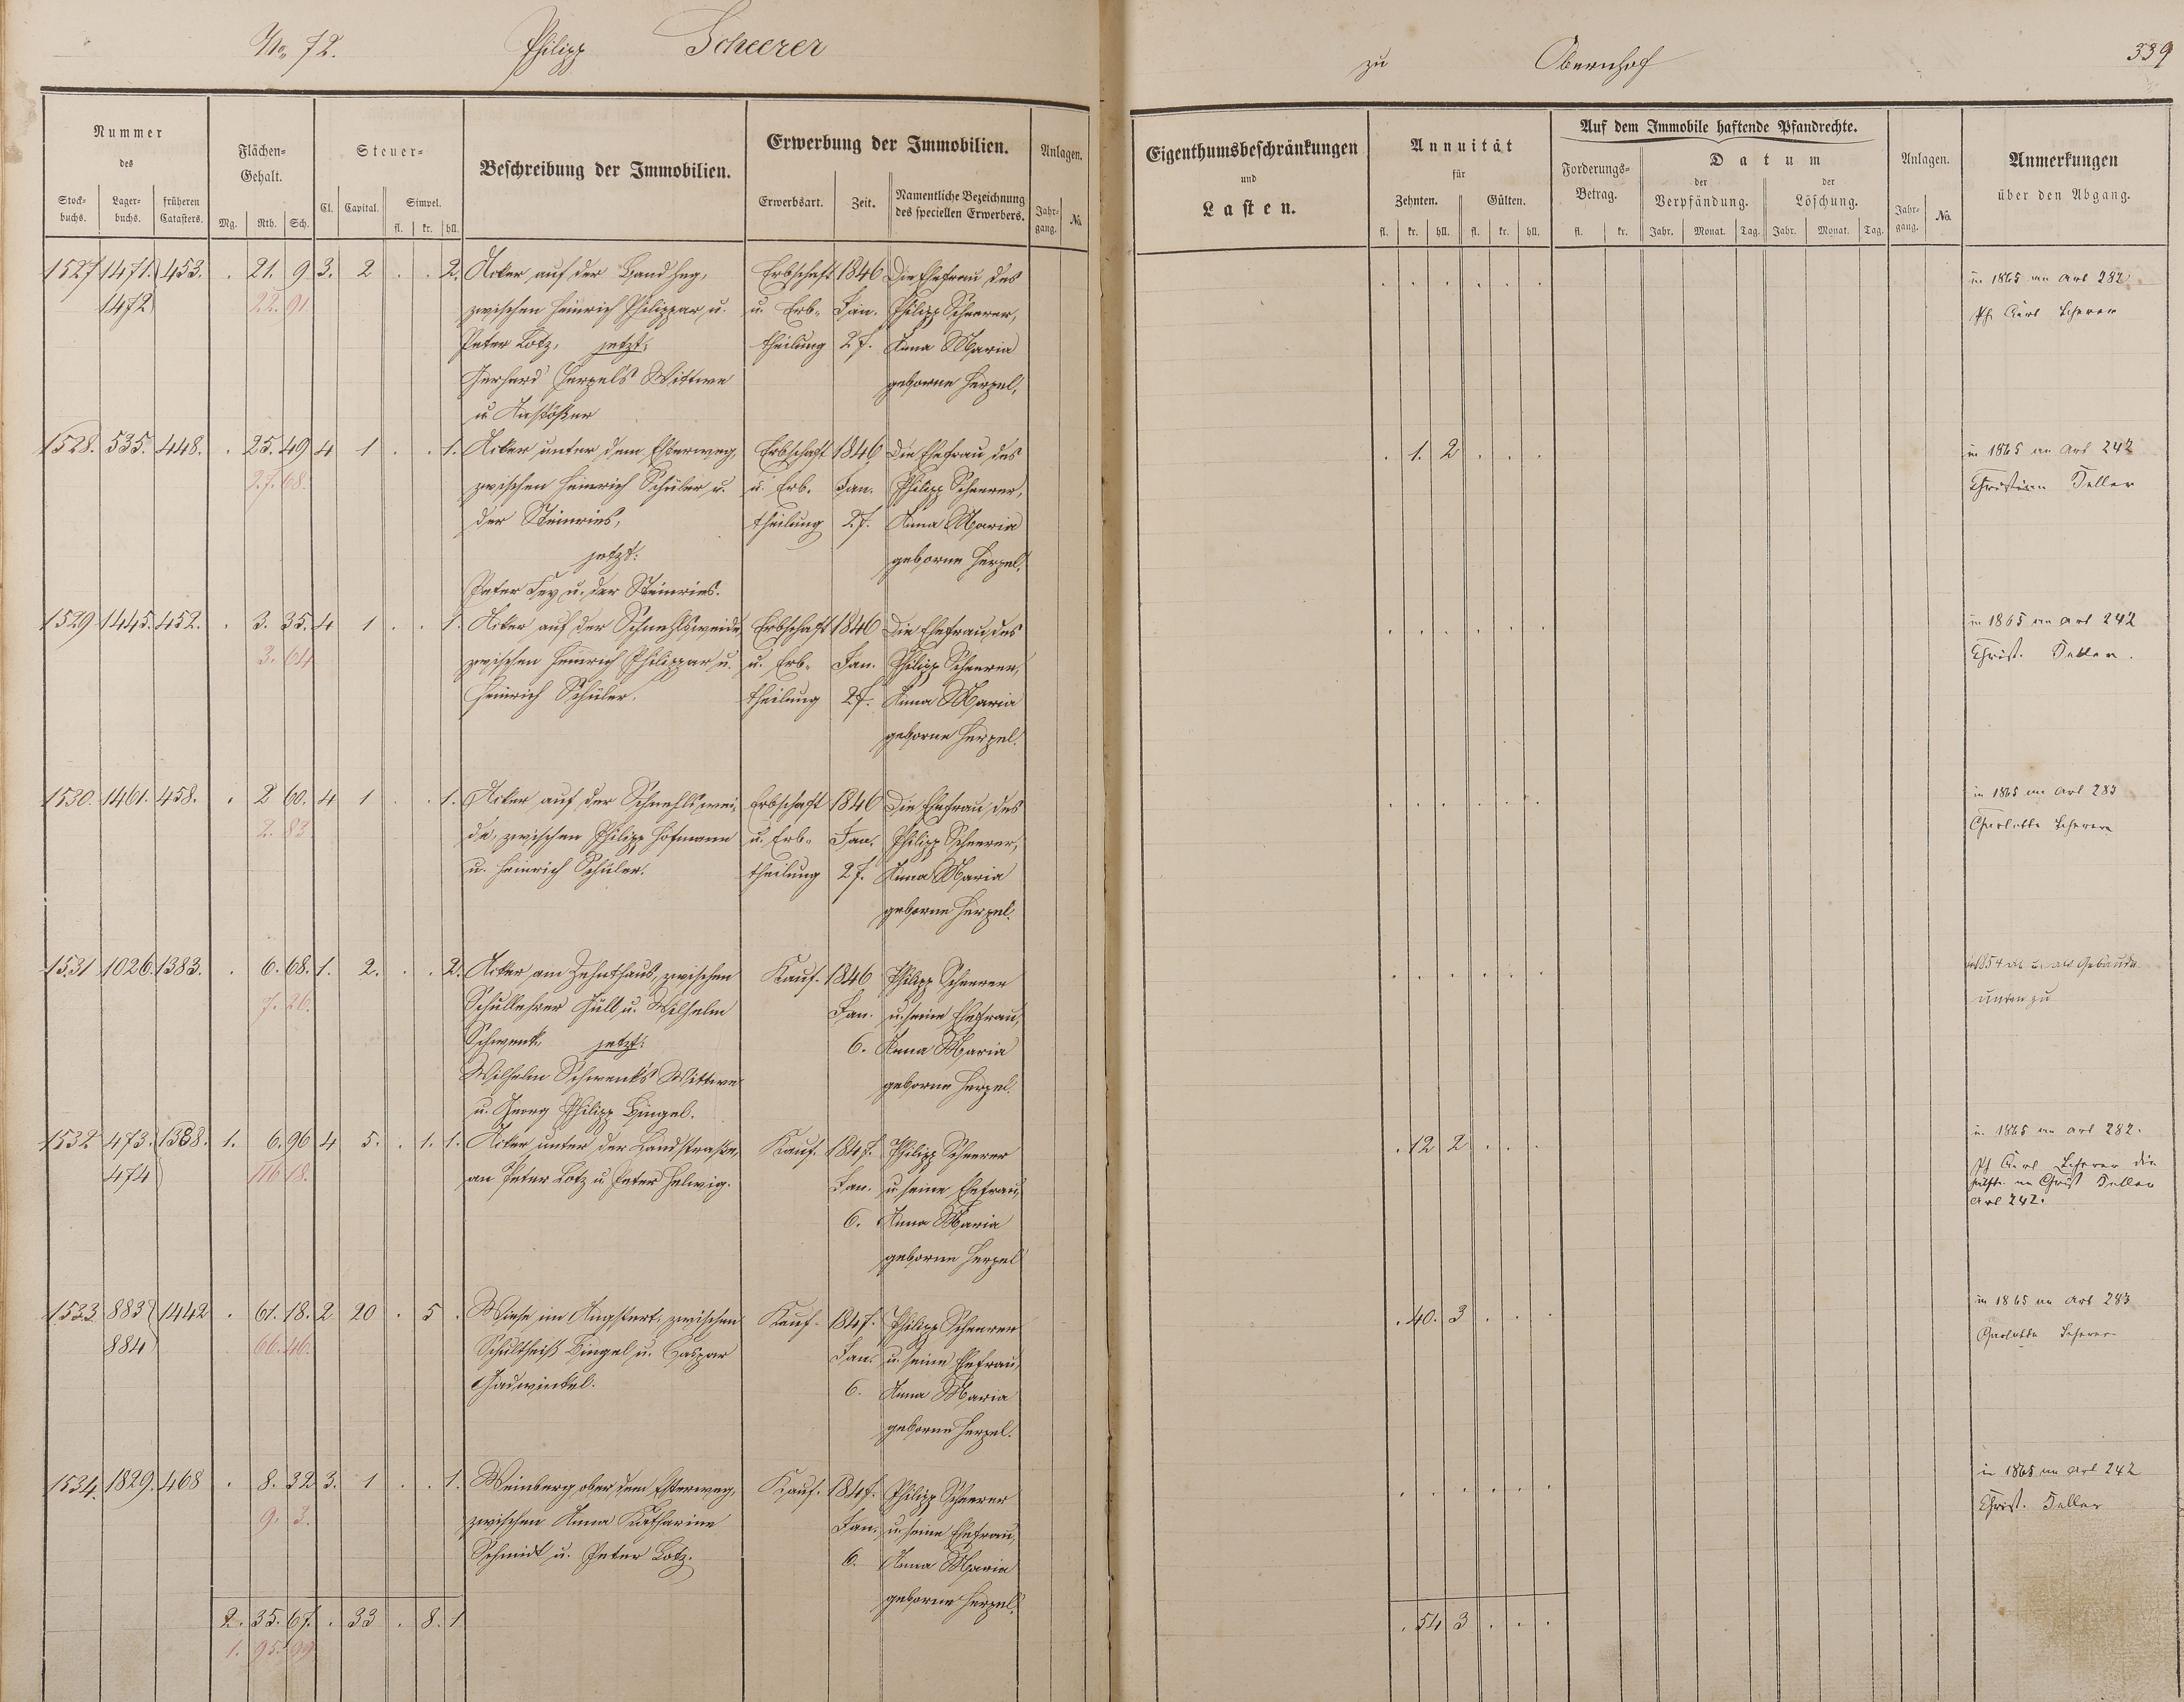 No. 72. Philipp Scheerer
zu Obernhof 339
Nummer des
Stock-buchs. Lager-buchs. früheren Catasters.
Flächen-Gehalt.
Mg. Rth. Sch.
Steuer-
Cl. Capital. Simpel.
fl. kr. hll.
Beschreibung der Immobilien.
Erwerbung der Immobilien.
Erwerbsart. Zeit. Namentliche Bezeichnung des speciellen Erwerbers.
Anlagen.
Jahr-gang. No.
Eigenthumsbeschränkungen
und
Lasten.
Annuität
für
Zehnten. Gülten.
fl. kr. hll. fl. kr. hll.
Auf dem Immobile haftende Pfandrechte.
Forderungs-Betrag.
fl. kr.
Datum
der Verpfändung. der Löschung.
Jahr. Monat. Tag. Jahr. Monat. Tag.
Anlagen.
Jahr-gang. No.
Anmerkungen
über den Abgang.
1527 1471. 453. . 21. 9 3. 2 . . 2. Acker auf der Hand heg, Erbschaft 1846 Die Ehefrau des
1472 22. 91 zwischen Heinrich Philippar u. u. Erb- Jan. Philipp Scheerer,
Peter Lotz, jetzt: theilung 27. Anna Maria
Gerhard Herpel's Wittwe geborne Herpel,
u Anstößer
in 1865 an Art 282
Ph Carl Scherer
1528. 535. 448. . 25. 49 4 1 . . 1. Acker unter dem Esterweg, Erbschaft 1846 Die Ehefrau des
27. 68. zwischen Heinrich Schüler u. u. Erb- Jan. Philipp Scheerer,
der Steinries, theilung 27. Anna Maria
jetzt: geborne Herpel,
Peter Fey u. der Steinries.
. 1. 2 . . .
in 1865 an Art 242
Christian Teller
1529 1445. 452. . 3. 35. 4 1 . . 1. Acker auf der Schnehlsweide Erbschaft 1846 Die Ehefrau des
3. 64 zwischen Heinrich Philippar u. u. Erb- Jan. Philipp Scheerer,
Heinrich Schüler. theilung 27. Anna Maria
geborne Herpel.
in 1865 an Art 242
Christ. Teller.
1530. 1461. 458. . 2 60. 4 1 . . 1. Acker auf der Schnehlswei- Erbschaft 1846 Die Ehefrau des
2. 83 de, zwischen Philipp Hofmann u. Erb- Jan. Philipp Scheerer,
u. Heinrich Schüler. theilung 27. Anna Maria
geborne Herpel.
in 1865 an Art 283
Charlotte Scherer
1531 1026. 1383. . 6. 68. 1. 2. . . 2. Acker am Zehnthaus, zwischen Kauf. 1846 Philipp Scheerer
7. 26. Schullehrer Güll u. Wilhelm Jan. u. seine Ehefrau,
Schwenk, jetzt: 6. Anna Maria
Wilhelm Schwenk's Wittwe geborne Herpel.
u. Georg Philipp Bingel.
in 1854 ab u. als Gebäude
unten zu
1532 473. 1388. 1. 6. 96 4 5. . 1. 1. Acker unter der Landstraße, Kauf. 1847. Philipp Scheerer
474 116 18. an Peter Lotz u Peter Helwig. Jan. u seine Ehefrau,
6. Anna Maria
geborne Herpel
. 12 2 . . .
in 1865 an Art 282.
Ph Carl Scherer die
Hälfte an Christ Teller
Art 242.
1533 883 1442 . 61. 18. 2 20 . 5 . Wiese im Angstert, zwischen Kauf. 1847. Philipp Scheerer
884 66. 46. Schultheiß Bingel u. Caspar Jan. u. seine Ehefrau,
6. Anna Maria
geborne Herpel.
. 40. 3 . . .
in 1865 an Art 283
Charlotte Scherer
1534. 1829. 468 . 8. 32 3. 1 . . 1. Weinberg ober dem Esterweg, Kauf. 1847. Philipp Scheerer
9. 3. zwischen Anna Katharine Jan. u. seine Ehefrau,
Schmidt u. Peter Lotz. 6. Anna Maria
geborne Herpel.
in 1865 an Art 242
Christ. Teller
2. 35. 67. . 33 . 8. 1
1. 95. 99
. 54 3 . . .